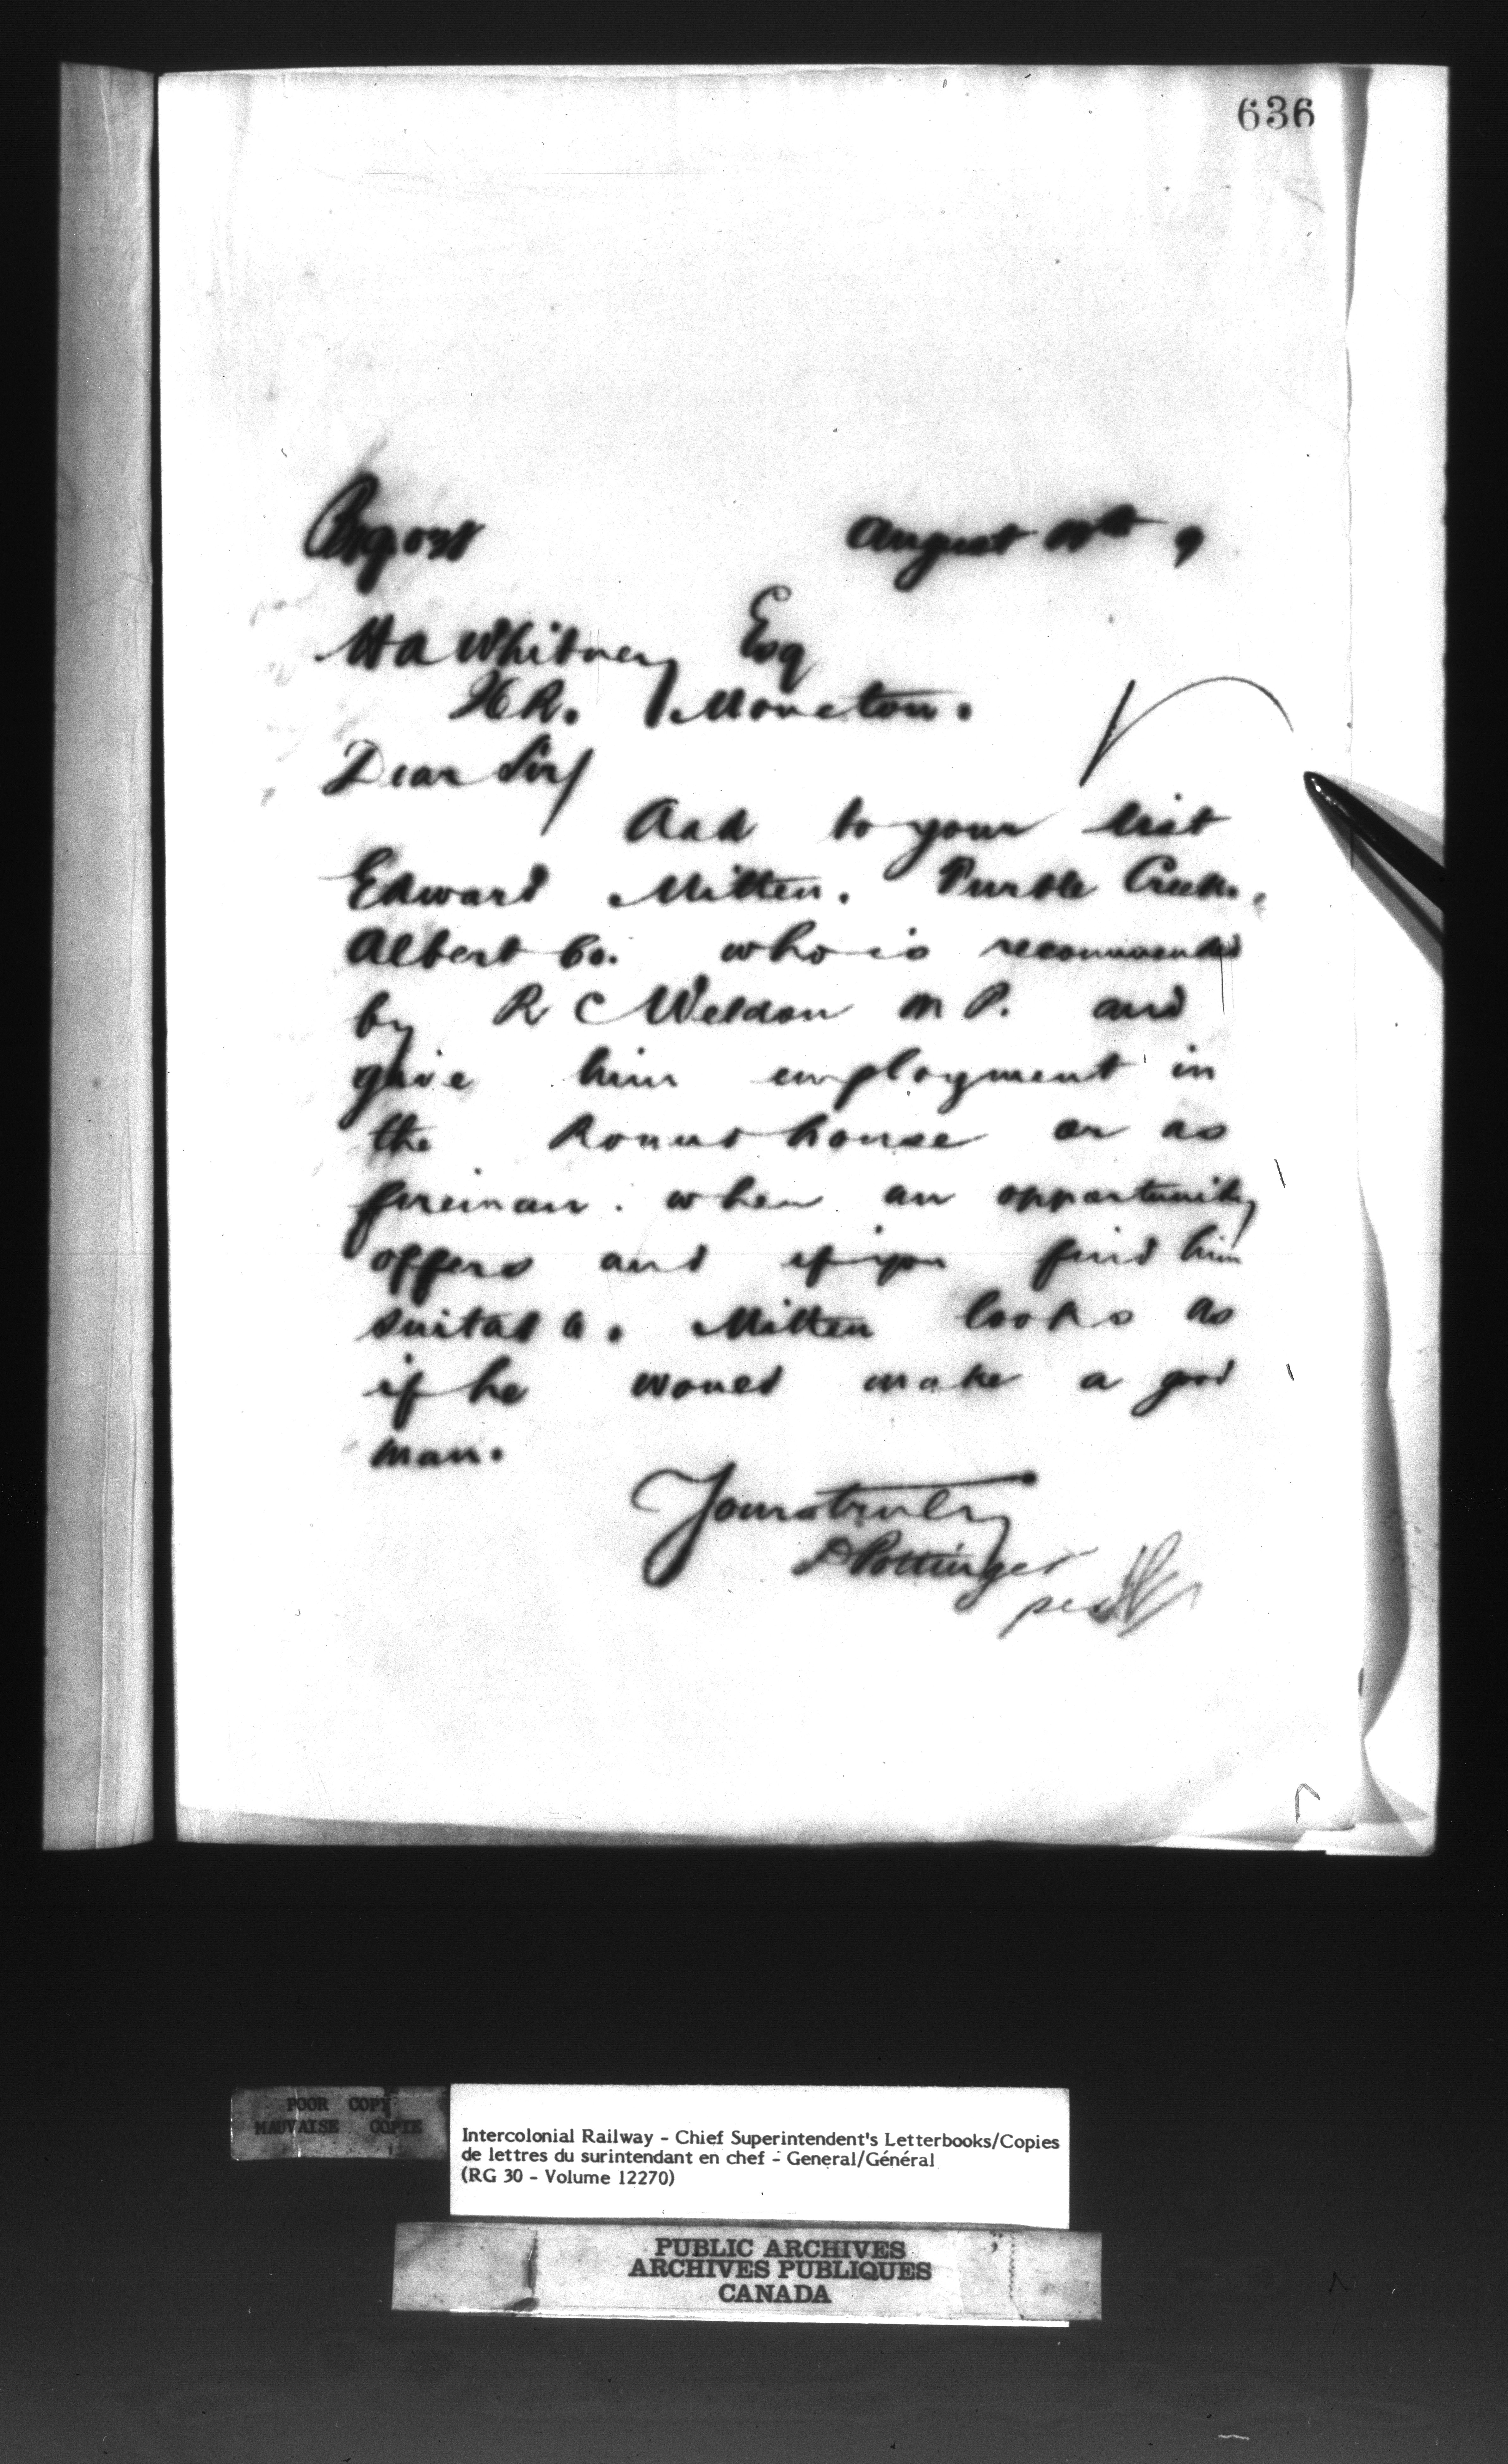 636
August 9
H A Whitney Esq
I C R. Moncton.
Dear Sir/
Add to your list
Edward Mitten. Turtle Creek,
Albert Co. who is recommended
by R C Weldon M P. and
give him employment in
the Round house or as
fireman. when an opportunity
offers and if you find him
suitable. Mitten looks as
if he would make a good
man.
Yours truly
D Pottinger
per
POOR COPY
MAUVAISE COPIE
Intercolonial Railway - Chief Superintendent's Letterbooks/Copies
de lettres du surintendant en chef - General/Général
(RG 30 - Volume 12270)
PUBLIC ARCHIVES
ARCHIVES PUBLIQUES
CANADA